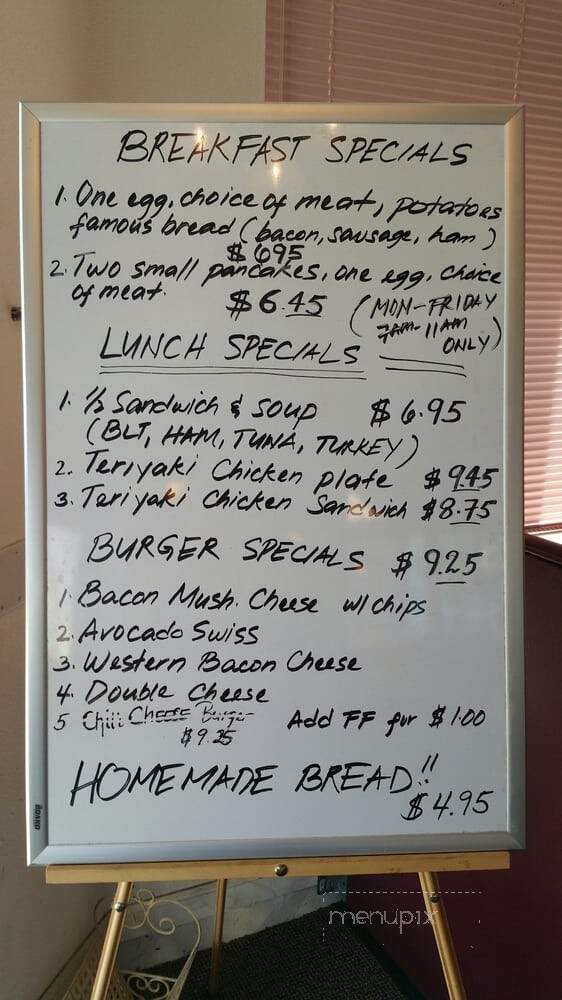 BREAKFAST SPECIALS
1. One egg, choice of meat, potatoes
famous bread (bacon, sausage, ham)
$ 695
2. Two small pancakes, one egg, choice
of meat. $ 6.45 (MON-FRIDAY
7AM-11AM
ONLY)
LUNCH SPECIALS
1. 1/2 Sandwich & soup $ 6.95
(BLT, HAM, TUNA, TURKEY)
2. Teriyaki Chicken plate $ 9.45
3. Teriyaki Chicken Sandwich $8.75
BURGER SPECIALS $ 9.25
1. Bacon Mush. Cheese w/chips
2. Avocado Swiss
3. Western Bacon Cheese
4. Double Cheese
5 Chili Cheese Burger Add FF for $1.00
$9.25
HOMEMADE BREAD!!
$4.95
menupix